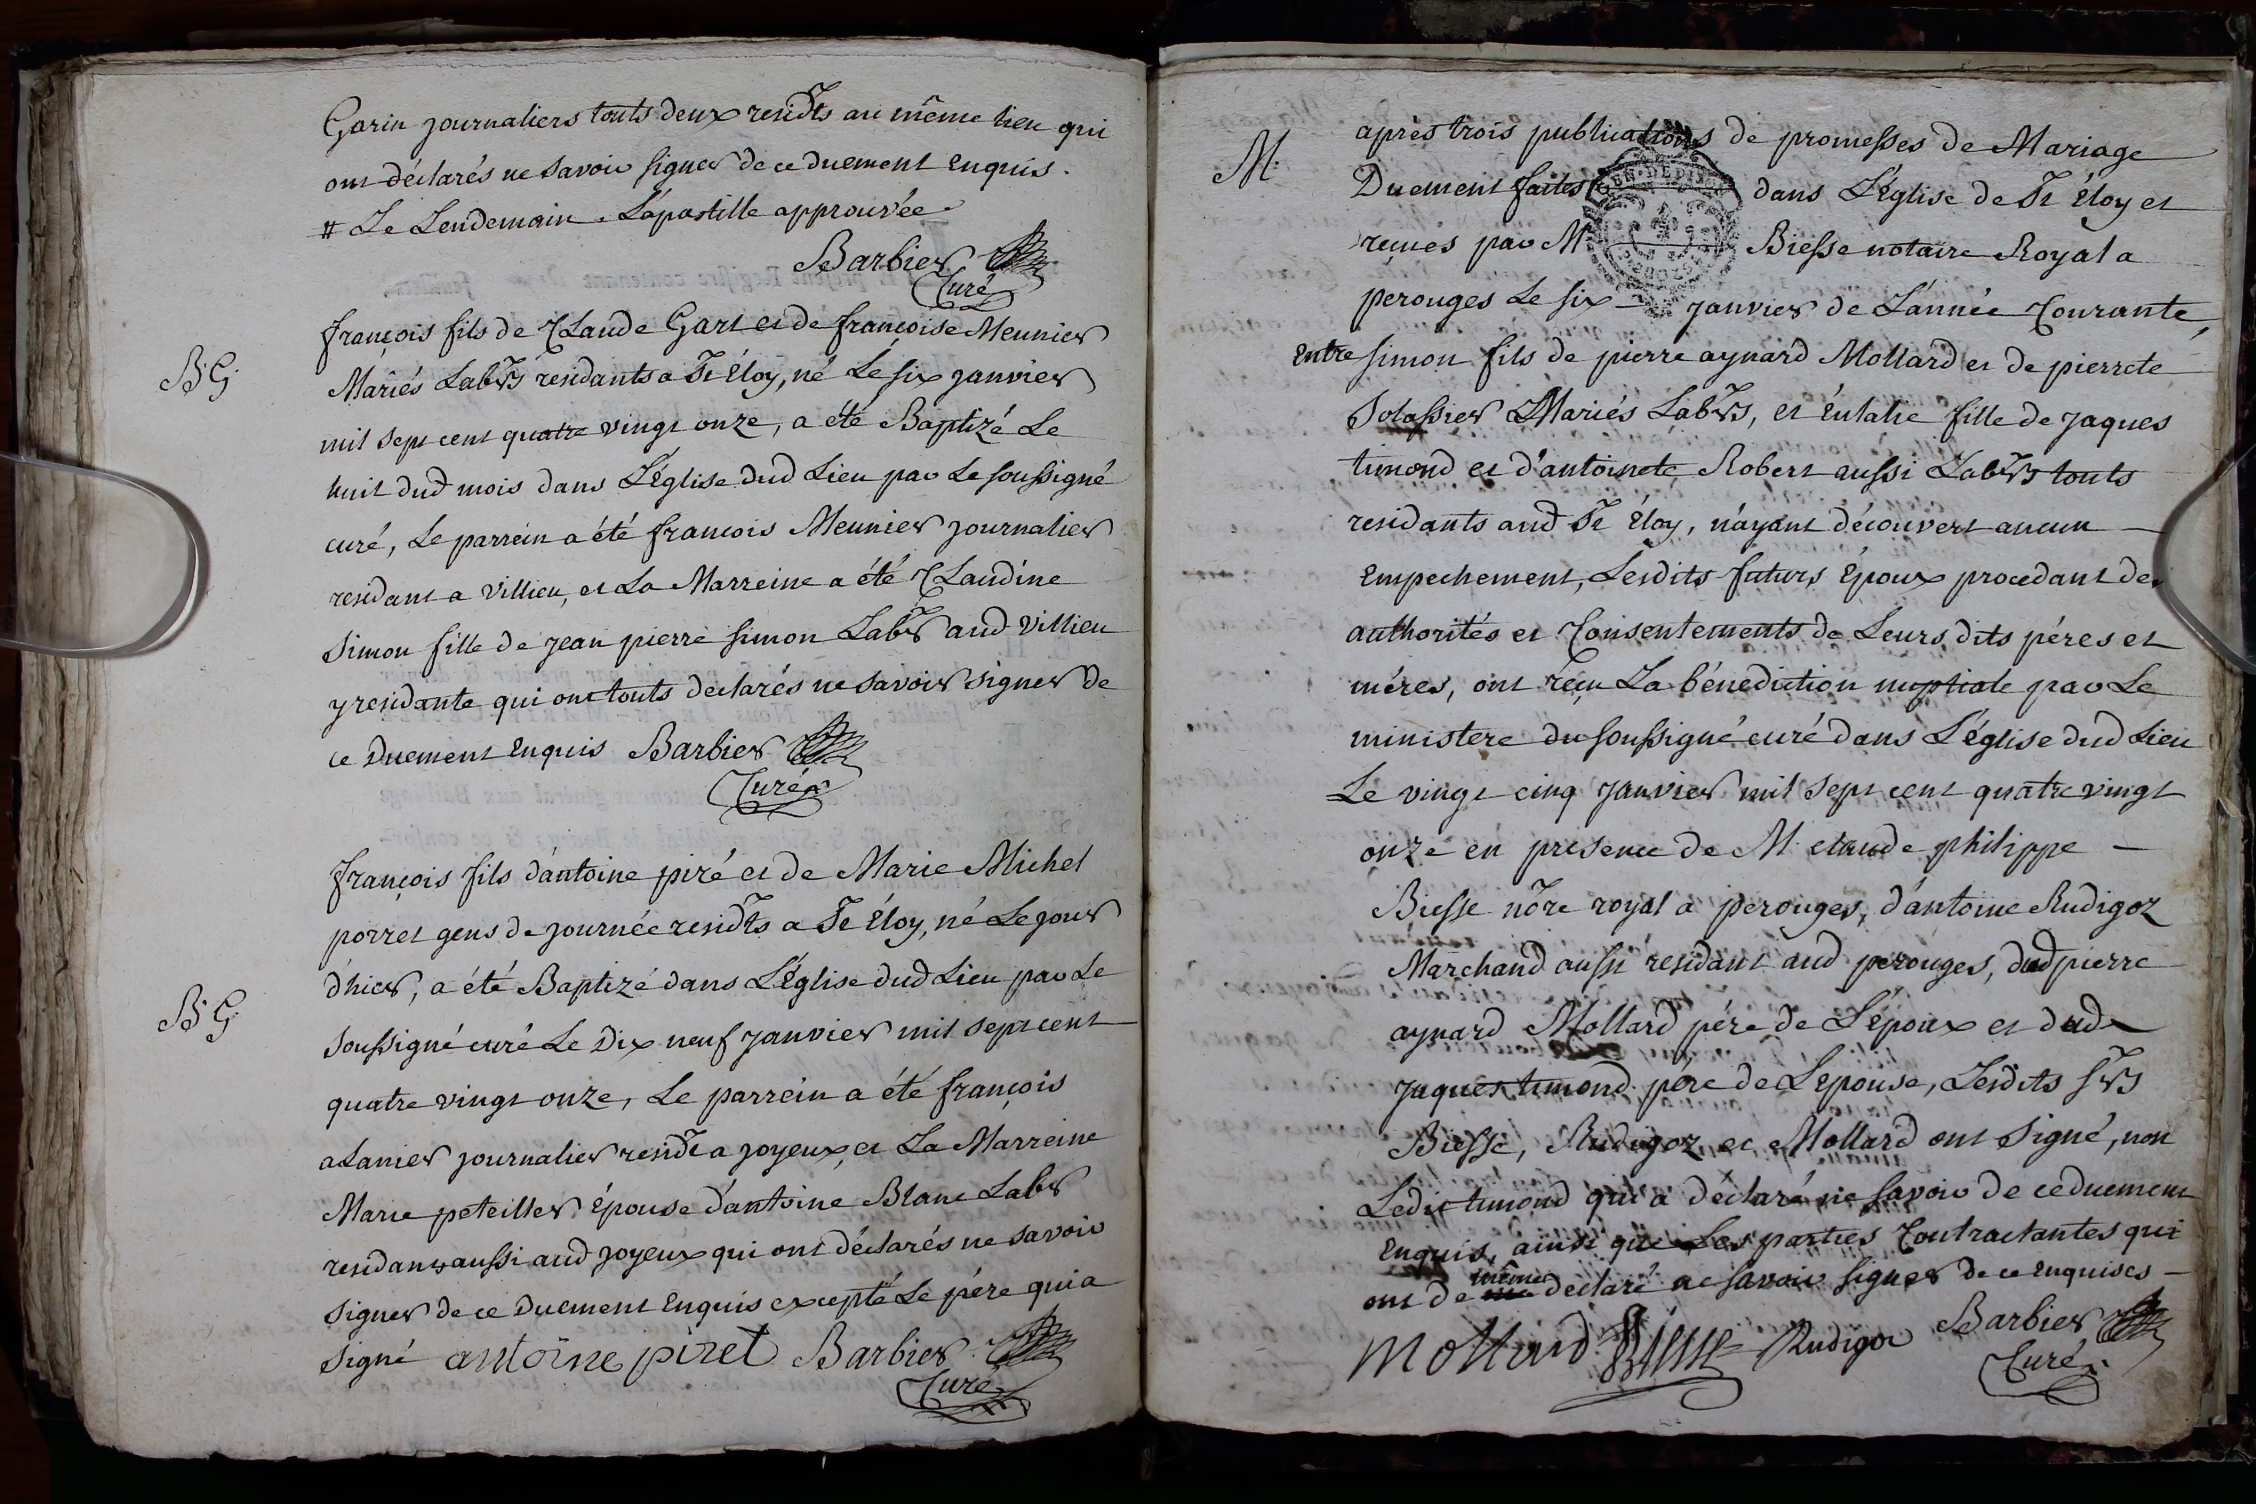 Garin journaliers touts deux residts au même lieu qui
ont déclarés ne savoir signer de ce duement enquis.
# Le Lendemain. L'apostille approuvée.
Barbier
Curé
françois fils de Claude Gart et de françoise Meunier
B. G.
Mariés Labrs residants a St Éloy, né Le six janvier
mil sept cent quatre vingt onze, a été Baptizé Le
huit dud mois dans L'Église dud Lieu par Le soussigné
curé, Le parrein a été francois Meunier journalier
residant a villieu, et La Marreine a été Claudine
Simon fille de jean pierre simon Labr aud villieu
y residante qui ont touts declarés ne savoir signer de
ce Duement Enquis Barbier
Curé
françois fils d'antoine piré et de Marie Michel
porret gens de journée residts a St Éloy, né Le jour
d'hier, a été Baptizé dans L'Église dud Lieu par Le
B. G.
soussigné curé Le Dix neuf janvier mil sept cent
quatre vingt onze, Le parrein a été françois
alanier journalier residt a joyeux, et La Marreine
Marie peteiller Épouse d'antoine Blanc Labr
residants aussi aud joyeux qui ont déclarés ne savoir
signer de ce Duement Enquis excepté Le père qui a
signé antoine piret Barbier
Curé
M.
après trois publications de promesses de Mariage
Duement faites dans L'Église de St Éloy et
reçues par M Biesse notaire Royal a
perouges Le six janvier de L'année Courante,
Entre simon fils de pierre aynard Mollard et de pierrete
Solassier Mariés Labrs, et Eulalie fille de jaques
timond et d'antoinete Robert aussi Labrs touts
residants aud St Éloy, n'ayant découvert aucun
Empechement, Lesdits futurs Époux procedant de
authorités et Consentements de Leurs dits péres et
méres, ont reçu La bénediction nuptiale par Le
ministere du soussigné curé dans L'église dud Lieu
Le vingt cinq janvier mil sept cent quatre vingt
onze en presence de M claude philippe
Biesse nore royal a perouges, d'antoine Rudigoz
Marchand aussi residant aud perouges, dud pierre
aynard Mollard pére de L'époux et dud
jaques timond pére de L'epouse, Lesdits srs
Biesse, Rudigoz et Mollard ont signé, non
Ledit timond qui a déclaré ne savoir de ce duement
Enquis, ainsi que Les parties Contractantes qui
ont de même declaré ne savoir signer de ce Enquises
Mollard Biesse Rudigoz Barbier
Curé